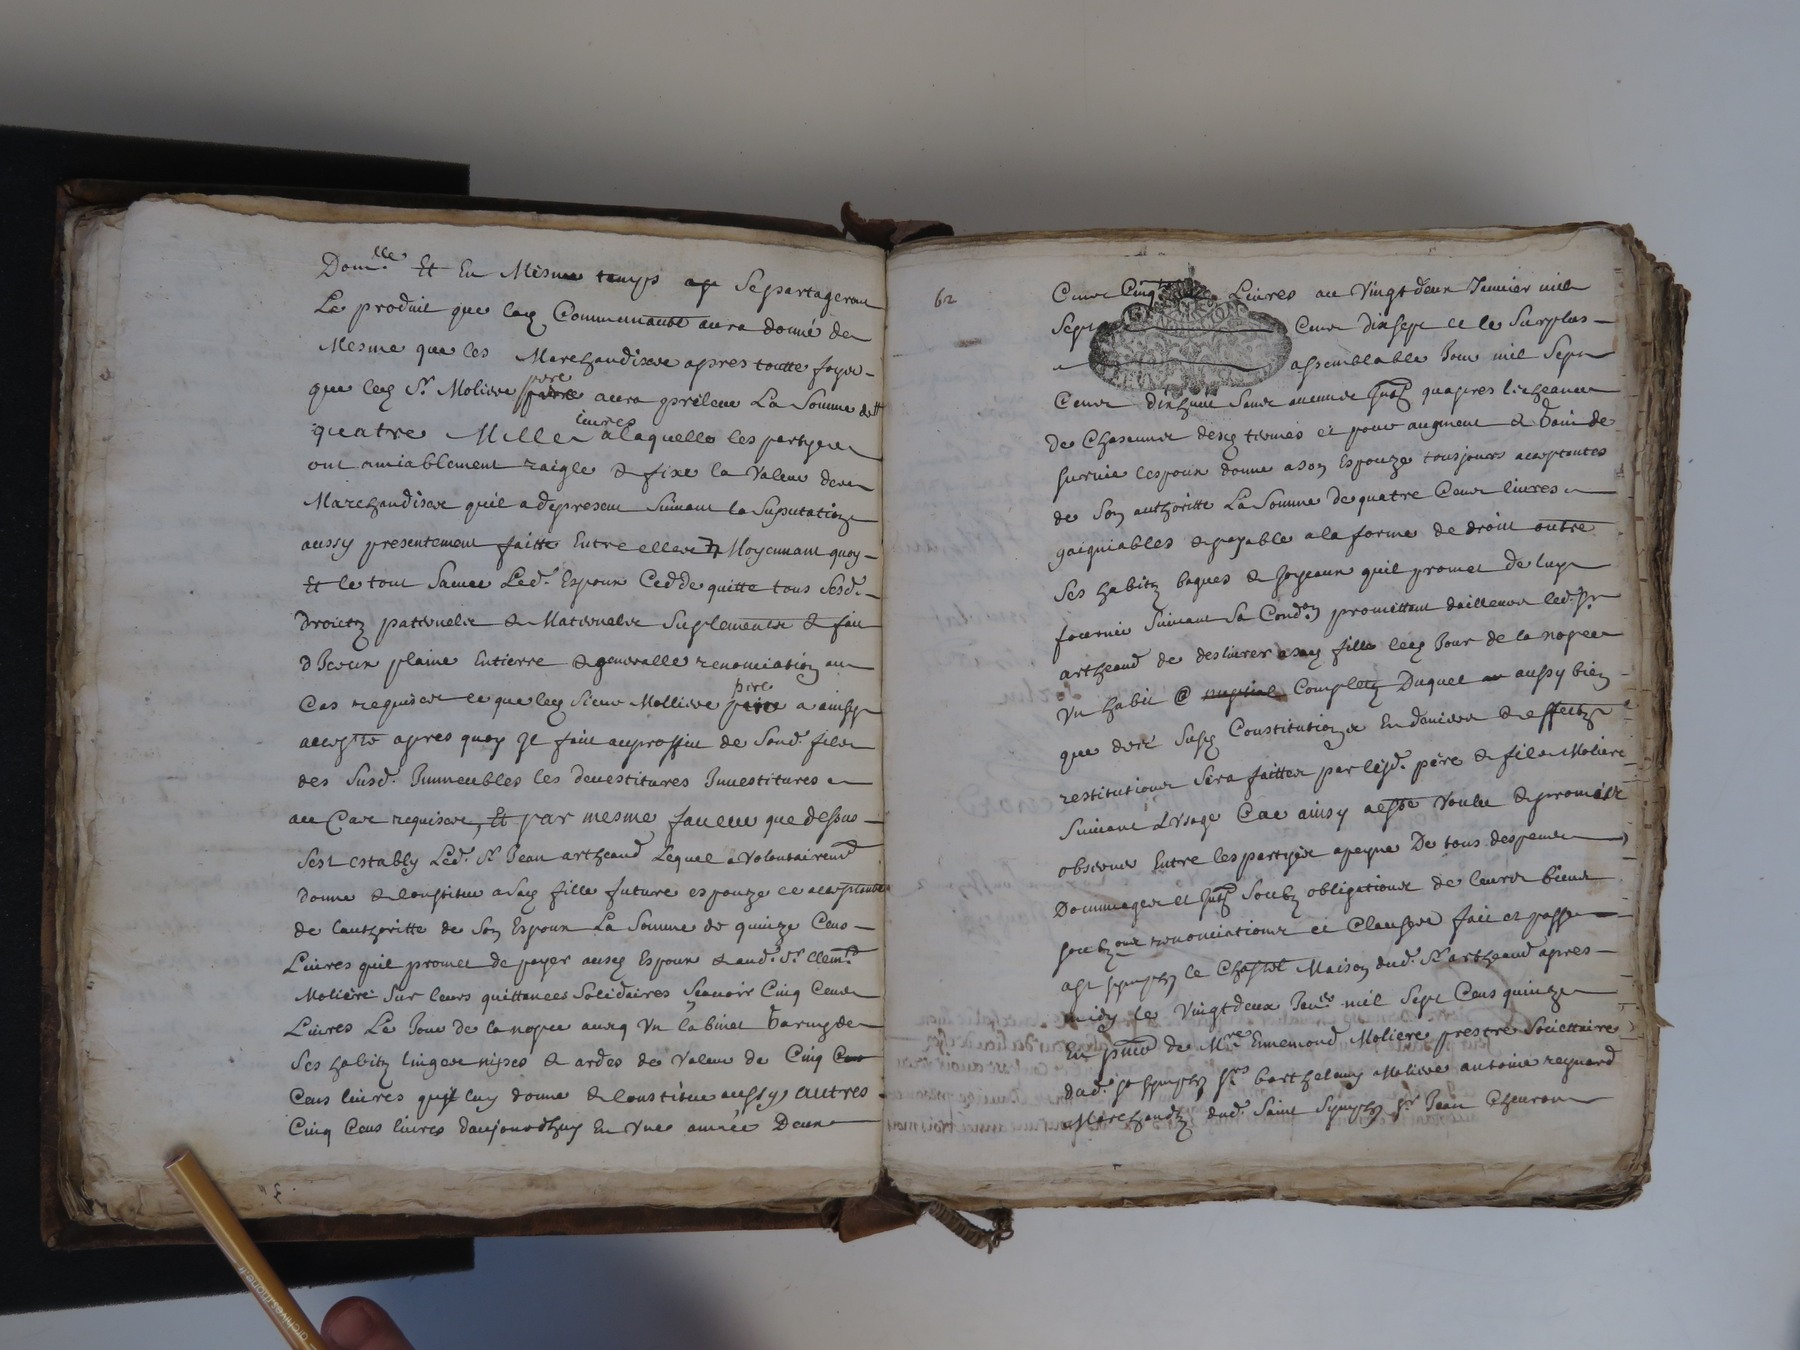 Dom.lle Et En Mesme temps ap Separtageront
Le produit que lad Communauté aura donné de
Mesme que les Marchandises apres toutte foys
que led Sr Moliere père aura prélevé La Somme de
quatre Mille livres a laquelle les partyes
ont amiablement raigle & fixe la Valeur des
Marchandises quil a depresent Suivant la Suputation
aussy presentement faitte Entre elles Moyennant quoy
Et le tout Sauve Led. Espoux Cedde quitte tous Sesd.
Droictz paternels & Maternels Suplements & fait
d'Iceux plaine Entierre & generalle renonciation au
Cas requises ce que led Sieur Molliere père a ainsy
accepté apres quoy Il fait au proffit de Sond. fils
des Susd. Immeubles les devestitures Investitures
au Cas requises, Et par mesme faveur que dessus
Sest estably Led. Sr Jean artheaud Lequel a Volontairemt
donne & Constitue a Sad fille future espouze ce acceptante
de lauthoritte de Son Espoux La Somme de quinze Cens
Livres quil promet de payer ausd Espoux & aud. Sr Clemt
Moliere Sur leurs quittances Solidaires Scavoir Cinq Cens
Livres Le Jour de la nopce avecq Un Cabinet Garny de
Ses habitz linges nipes & ardes de Valeur de Cinq
Cens livres quil luy donne & Constitue aussy autres
Cinq Cens livres daujourdhuy En Une année Deux
62
Cens Cinqte Livres au Vingt deux Janvier mil
Sept Cens dix sept et le Surplus
a semblable Jour mil Sept
Cens dix huit Sans aucuns qu apres licheance
de Chascuns desd termes et pour augment & Gain de
survie lespoux donne a son Espouze tousjours acceptante
de Son authoritte La Somme de quatre Cens livres
gaigniables & payable a la forme de droit outre
Ses habitz bagues & Joyeaux quil promet de luy
fournir Suivant Sa Condon promettant dailleurs led. Sr
artheaud de deslivrer a sad fille led Jour de la nopce
Un habit @ nuptial Complet Duquel aussy bien
que des Susd Constitutions En deniers & effectz
restitutions Sera faittes par lesd. père & fils Moliere
Suivant L'Usage Car ainsy a esté Voulu & promis
observer Entre les partyes a peyne De tous despens
Dommages et Soubz obligations de leurs biens
renonciations et Clauses fait et passe
a St Symph le Chastel Maison dud. Sr artheaud apres
midy le Vingt deux Janer mil Sept Cens quinze
En de Mre Ennemond Moliere prestre Societtaire
dud. St Symph Srs barthelemy Moliere antoine reynard
Marchandz dud. Saint Symph Sr Jean Chevron